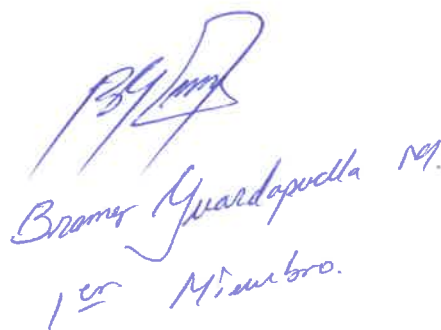 Bramer Guardapuclla M.
1er Miembro.